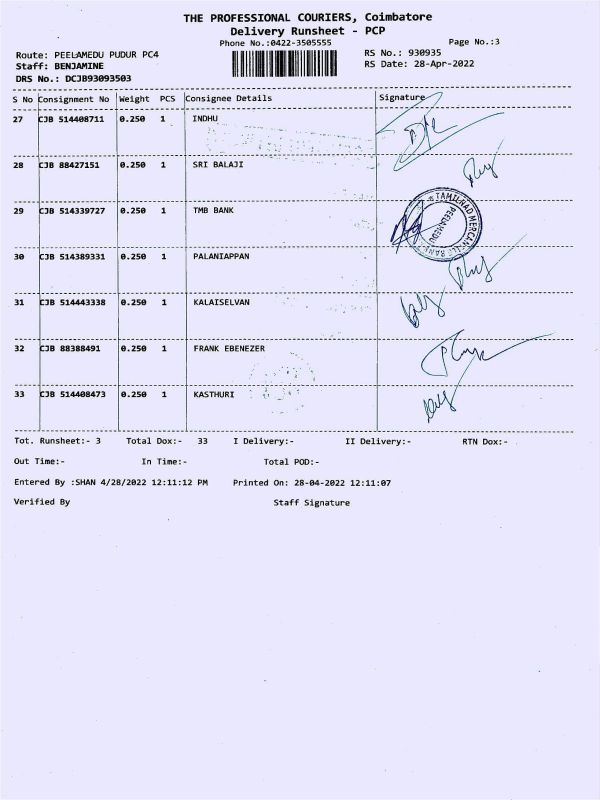 THE PROFESSIONAL COURIERS, Coimbatore
Delivery Runsheet - PCP
Phone No.:0422-3505555
Page No.:3
Route: PEELAMEDU PUDUR PC4
RS No.: 930935
Staff: BENJAMINE
RS Date: 28-Apr-2022
DRS No.: DCJB93093503
S No Consignment No Weight PCS Consignee Details Signature
27 CJB 514408711 0.250 1 INDHU
28 CJB 88427151 0.250 1 SRI BALAJI
29 CJB 514339727 0.250 1 TMB BANK
TAMILNAD MERCANTILE BANK
PEELAMEDU
30 CJB 514389331 0.250 1 PALANIAPPAN
31 CJB 514443338 0.250 1 KALAISELVAN
32 CJB 88388491 0.250 1 FRANK EBENEZER
33 CJB 514408473 0.250 1 KASTHURI
Tot. Runsheet:- 3 Total Dox:- 33 I Delivery:- II Delivery:- RTN Dox:-
Out Time:- In Time:- Total POD:-
Entered By :SHAN 4/28/2022 12:11:12 PM Printed On: 28-04-2022 12:11:07
Verified By Staff Signature